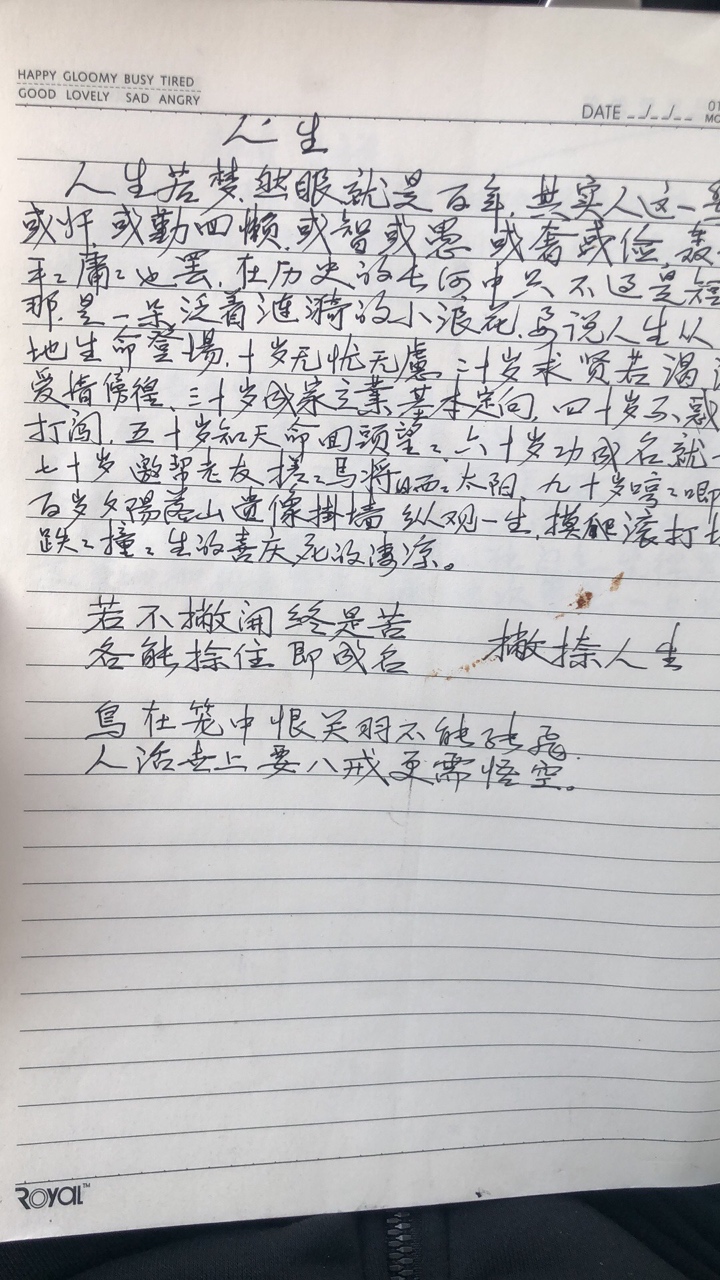 HAPPY GLOOMY BUSY TIRED
GOOD LOVELY SAD ANGRY
DATE _ _/_ _/_ _
人生
人生若梦,然眼就是百年,其实人这一
或忏,或勤四懒,或智或愚 或奢或俭,轰
平:庸:也罢,在历史的长河中只不过是短
那,是一朵泛着涟漪的小浪花,要说人生从
地生命登場,十岁无忧无慮 二十岁求贤若渴
爱情傍徨,三十岁成家立業基本定向,四十岁不惑
打闯,五十岁知天命回頭望:,六十岁功成名就
七十岁 邀幇老友搓:馬将,晒:太阳,九十岁哼:唧
百岁夕陽落山遗像掛墙 纵观一生,摸爬滚打
跌:撞:生的喜庆死的凄凉。
若不撇開终是苦
各能捺住即成名
撇捺人生
鳥在笼中恨关羽不能张飛.
人活世上要八戒更需悟空。
ROYAL™